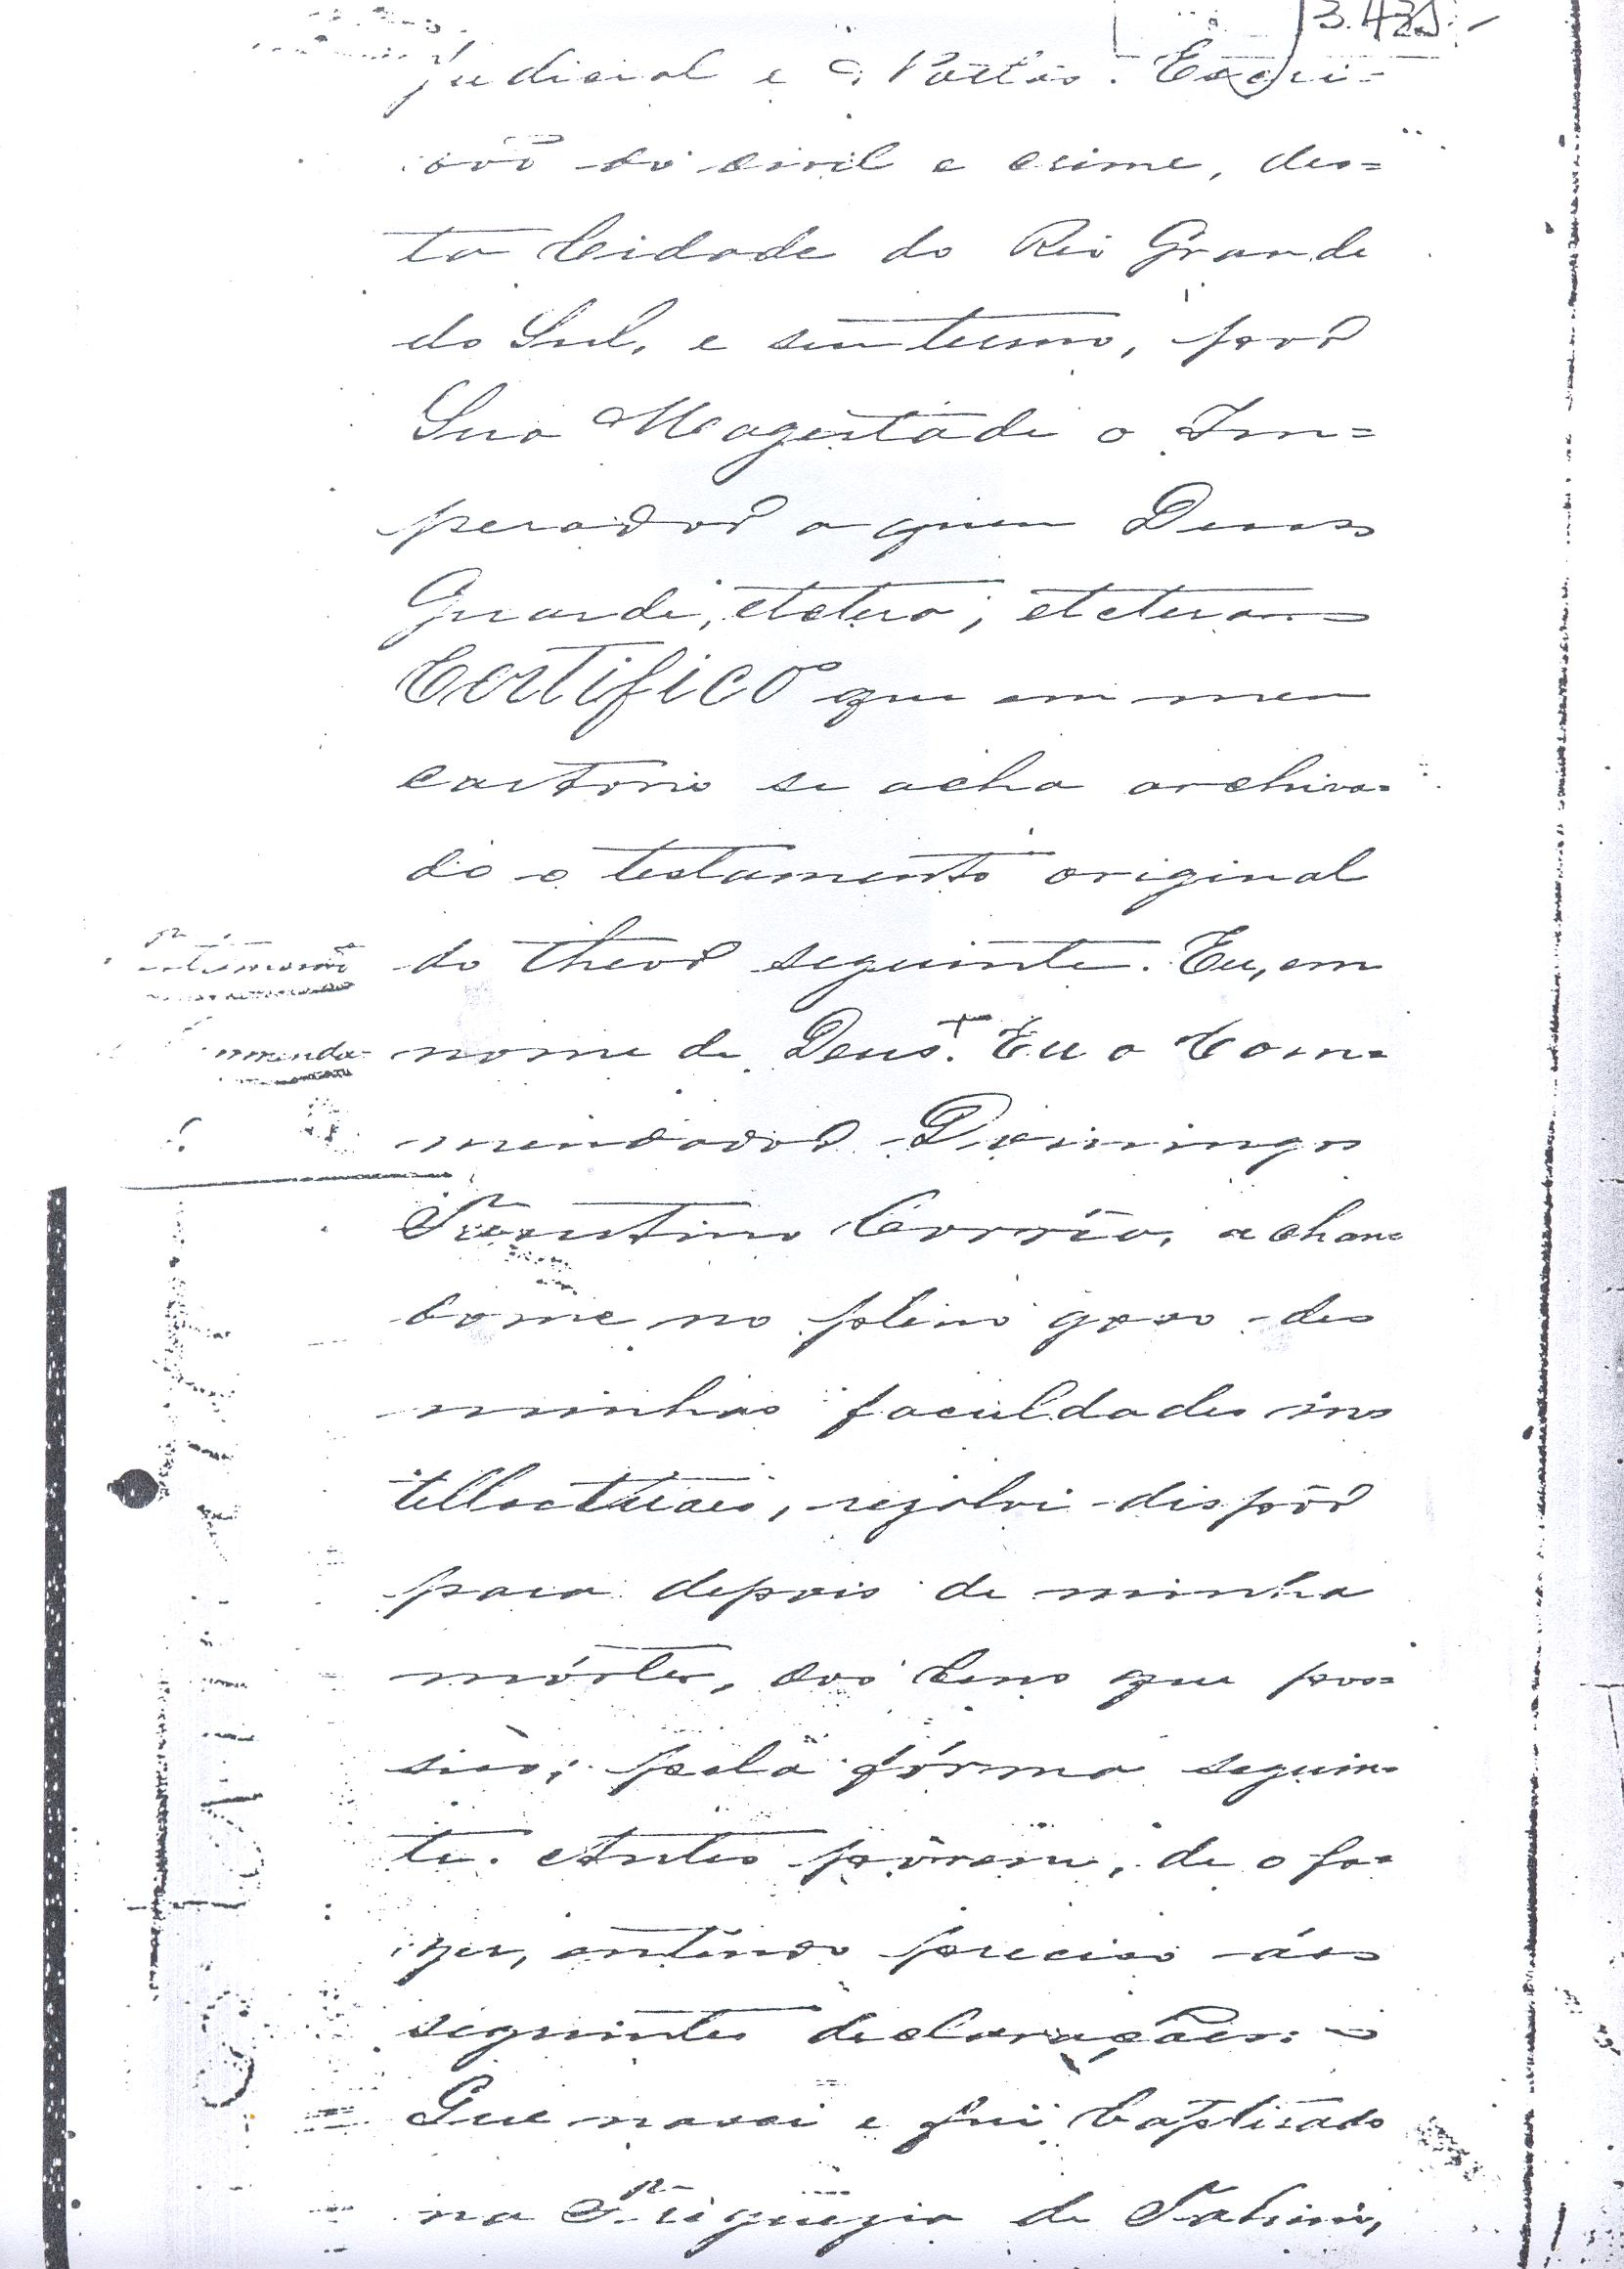 judicial e Notas. Escri=
vão do civil e crime, des=
ta Cidade do Rio Grande
do Sul, e seu termo, por
Sua Magestade o Im=
perador a quem Deus
Guarde, etctera, etctera
Certifico que em meu
cartorio se acha archiva=
do o testamento original
do theor seguinte. Eu, em
nome de Deus. Eu o Com=
mendador Domingos
Faustino Corrêa, achan=
dome no pleno goso das
minhas faculdades in=
tellectuaes, rezolvi dispôr
para depois de minha
mórte, dos bens que pos=
suo; pela fórma seguin=
te. Antes pôrem, de o fa=
zer, entendo preciso ás
seguintes declarações:
Que nasci e fui baptisado
na Freguezia de Tahim,